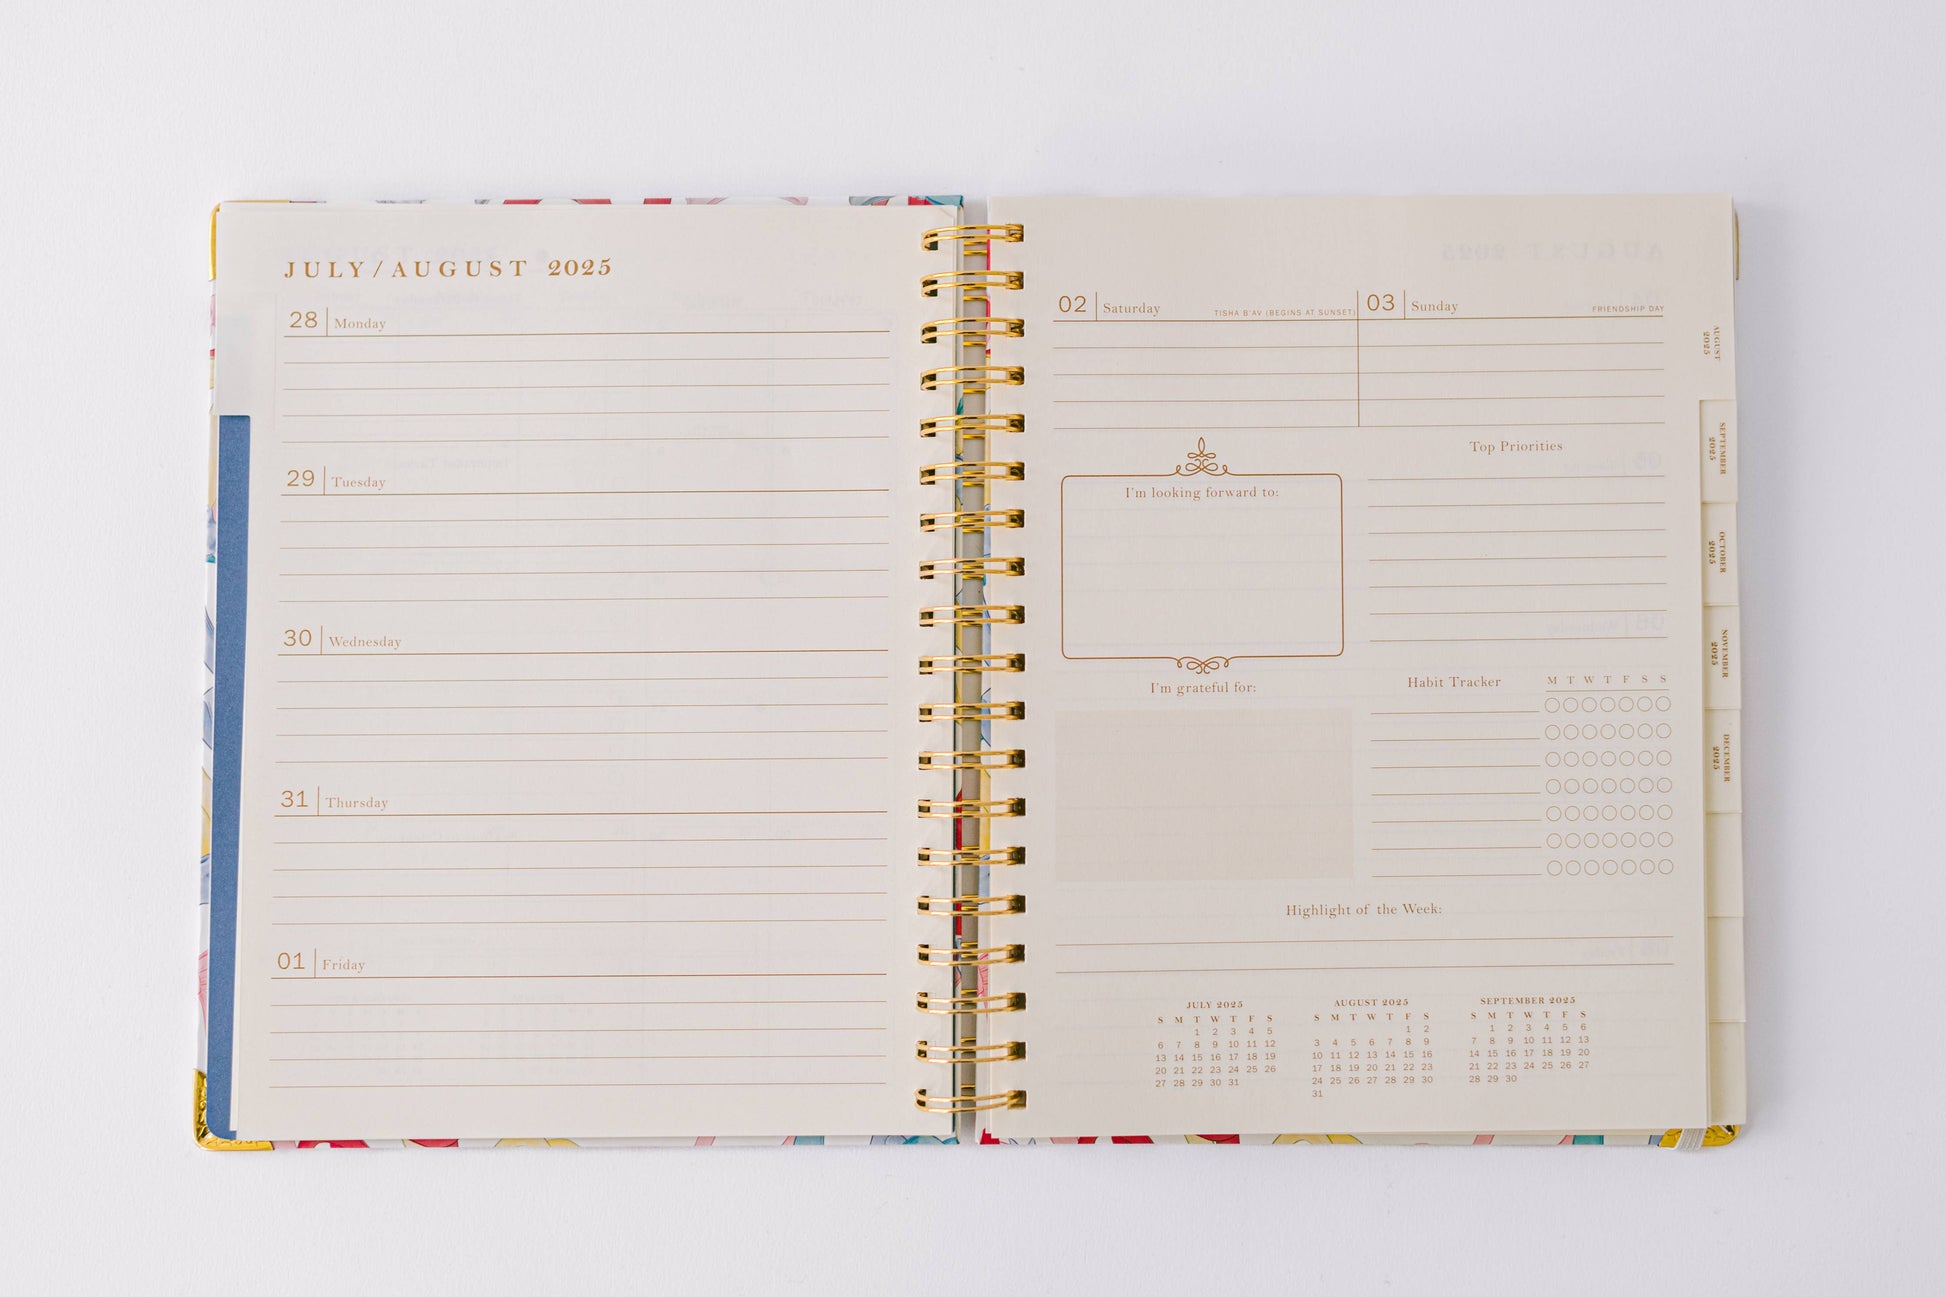 JULY/AUGUST 2025
28 Monday
29 Tuesday
30 Wednesday
31 Thursday
01 Friday
02 Saturday TISHA B'AV (BEGINS AT SUNSET)
03 Sunday FRIENDSHIP DAY
I'm looking forward to:
Top Priorities
I'm grateful for:
Habit Tracker M T W T F S S
Highlight of the Week:
JULY 2025
S M T W T F S
1 2 3 4 5
6 7 8 9 10 11 12
13 14 15 16 17 18 19
20 21 22 23 24 25 26
27 28 29 30 31
AUGUST 2025
S M T W T F S
1 2
3 4 5 6 7 8 9
10 11 12 13 14 15 16
17 18 19 20 21 22 23
24 25 26 27 28 29 30
31
SEPTEMBER 2025
S M T W T F S
1 2 3 4 5 6
7 8 9 10 11 12 13
14 15 16 17 18 19 20
21 22 23 24 25 26 27
28 29 30
AUGUST
2025
SEPTEMBER
2025
OCTOBER
2025
NOVEMBER
2025
DECEMBER
2025